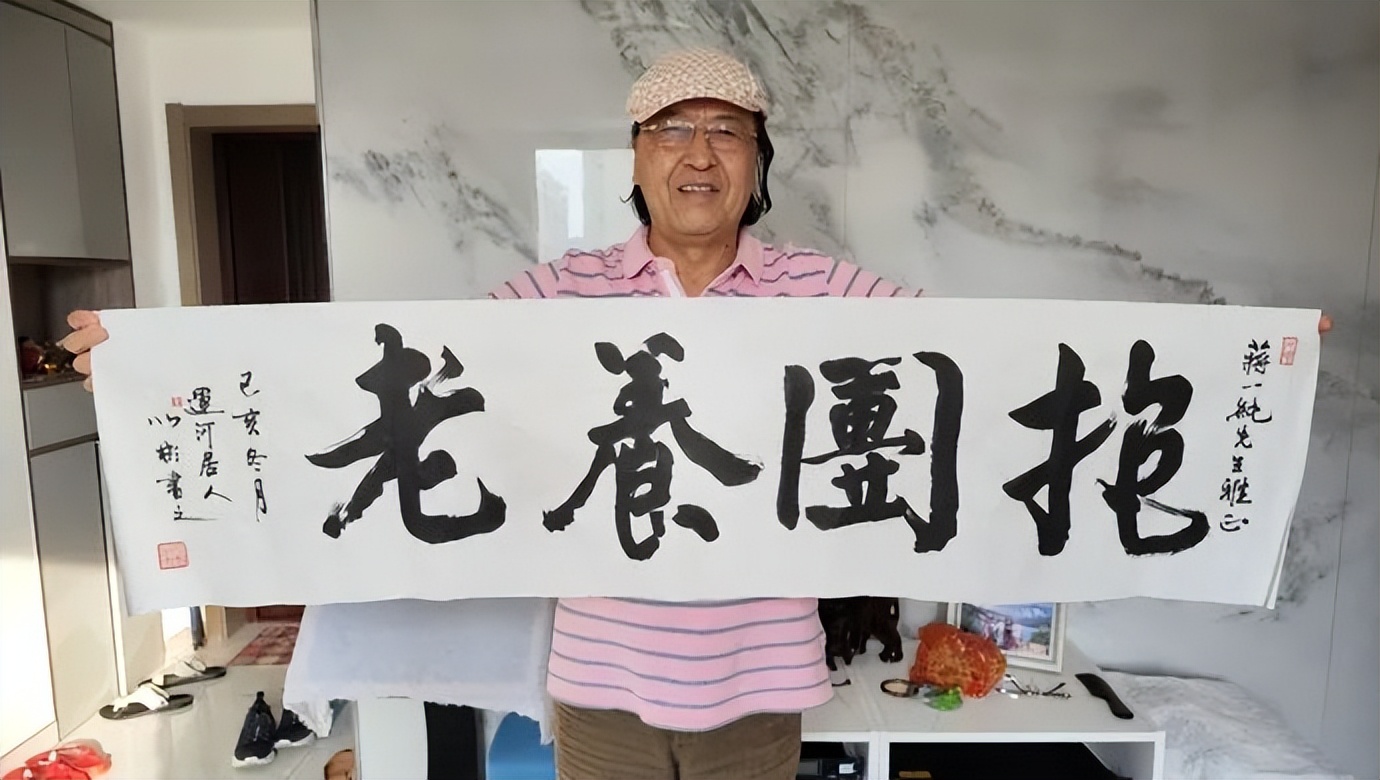 蔣一純先生雅正
抱團養老
己亥冬月
運河居人
彬書之